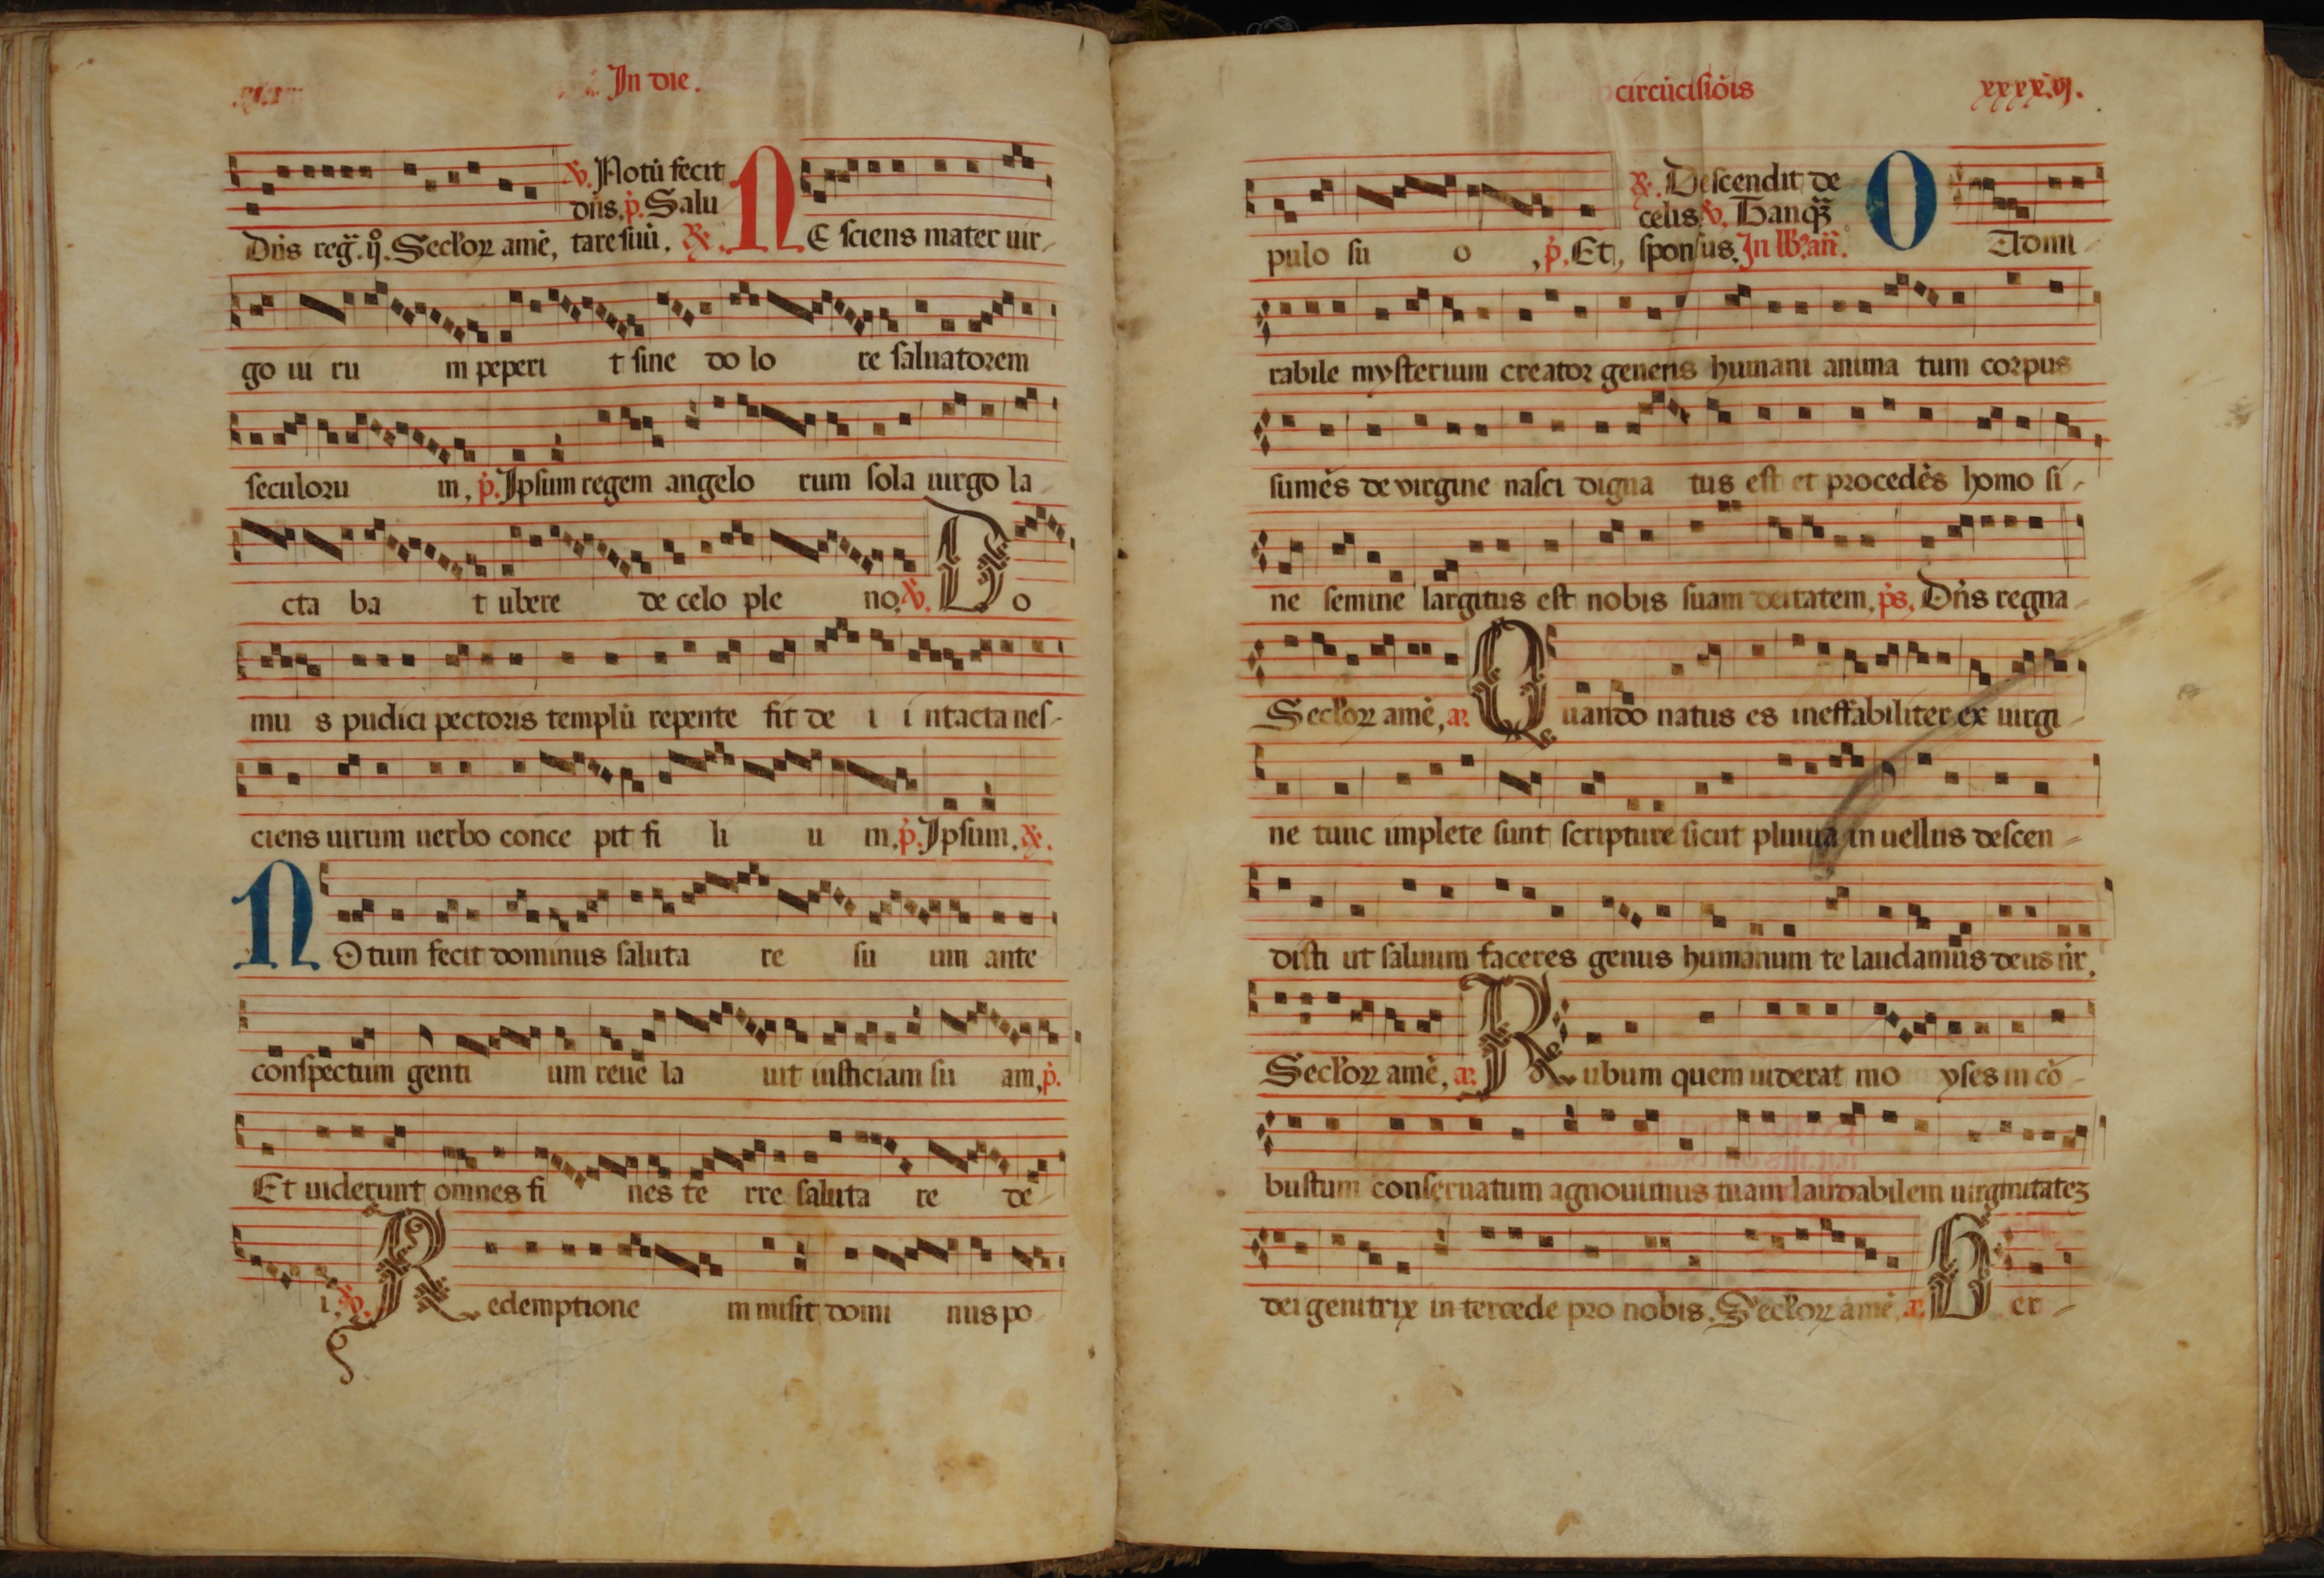 In die.
℣. Notū fecit
dn̄s. p̄. Salu
Dn̄s reḡ. ij°. Sec̄lor̄ꝝ amē, tare suū, ℟. NE sciens mater uir-
go ui ru m peperi t sine do lo re saluatorem
seculoru m, p̄. Ipsum regem angelo rum sola uirgo la-
cta ba t ubere de celo ple no. ℣. Do
mu s pudici pectoris templū repente fit de i i ntacta nes-
ciens uirum uerbo conce pit fi li u m. p̄. Ipsum, ℟.
NOtum fecit dominus saluta re su um ante
conspectum genti um reue la uit iusticiam su am, p̄.
Et uiderunt omnes fi nes te rre saluta re de-
i. ℣. Redemptione m misit domi nus po-
circūcisiōis xxxx.vj.
℟. Descendit de
celis. ℣. Tanqꝫ
pulo su o , p̄. Et, sponsus. In lb'. an̄. O Admi-
rabile mysterium creator generis humani anima tum corpus
sumēs de virgine nasci digna tus est et procedēs homo si-
ne semine largitus est nobis suam deitatem, ps, Dn̄s regna-
Sec̄lorꝝ amē, a. Quando natus es ineffabiliter ex uirgi-
ne tunc implete sunt scripture sicut pluuia in uellus descen-
disti ut saluum faceres genus humanum te laudamus deus nr̄.
Sec̄lorꝝ amē, a. Rubum quem uiderat mo yses in cō-
bustum conseruatum agnouimus tuam laudabilem uirginitateꝫ
dei genitrix in tercede pro nobis. Sec̄lorꝝ amē. a. Ger-